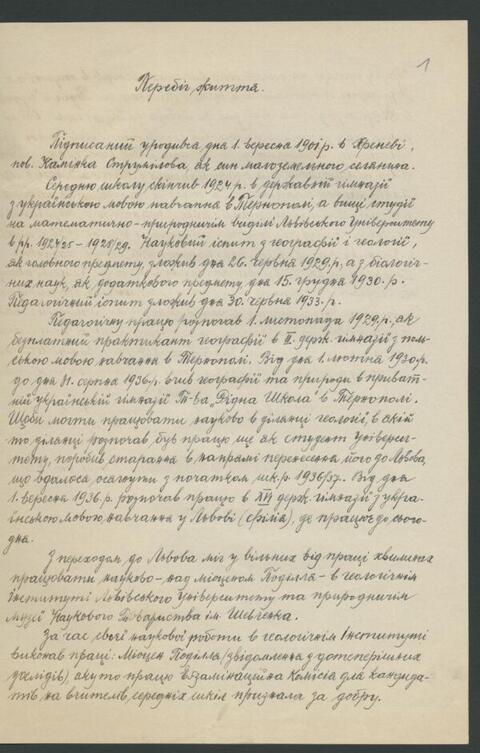 1
Перебіг життя.
Підписаний уродився дня 1. вересня 1901 р. в Яреневі,
пов. Камʼянка Струмілова, як син малоземельного селянина.
Середню школу скінчив 1924 р. в державній гімназії
з українською мовою навчання в Тернополі, а вищі студії
на математично-природничім виділі Львівського Університету
в рр. 1924/25 – 1928/29. Науковий іспит з географії і геології,
як головного предмету, зложив дня 26. червня 1929 р., а з біологіч-
них наук, як додаткового предмету дня 15. грудня 1930. р.
Педагогічний іспит зложив дня 30. червня 1933. р.
Педагогічну працю розпочав 1. листопада 1929 р., як
безплатний практикант географії в ІІ. держ. гімназії з поль-
ською мовою навчання в Тернополі. Від дня 1. лютня 1930 р.
до дня 31. серпня 1936 р. вчив географії та природи в приват-
ній українській гімназії Т-ва „Рідна Школа" в Тернополі.
Щоби могти працювати науково в ділянці геології, в якій
то ділянці розпочав був працю ще як студент Універси-
тету, поробив старання в напрямі перенесення його до Львова,
що вдалося осягнути з початком шк. р. 1936/37. Від дня
1. вересня 1936 р. розпочав працю в XII держ. гімназії з укра-
їнською мовою навчання у Львові (філія), де працює до сього-
дня.
З переходом до Львова міг у вільних від праці хвилинах
працювати науково – над міоценом Поділля – в геологічнім
інституті Львівського Університету та природничім
музеї Наукового Товариства ім. Шевченка.
За час своєї наукової роботи в геологічнім Інституті
виконав праці: Міоцен Поділля (звідомлення з дотеперішних
дослідів) яку то працю Екзамінаційна Комісія для кандида-
тів на вчителів середніх шкіл признала за добру.